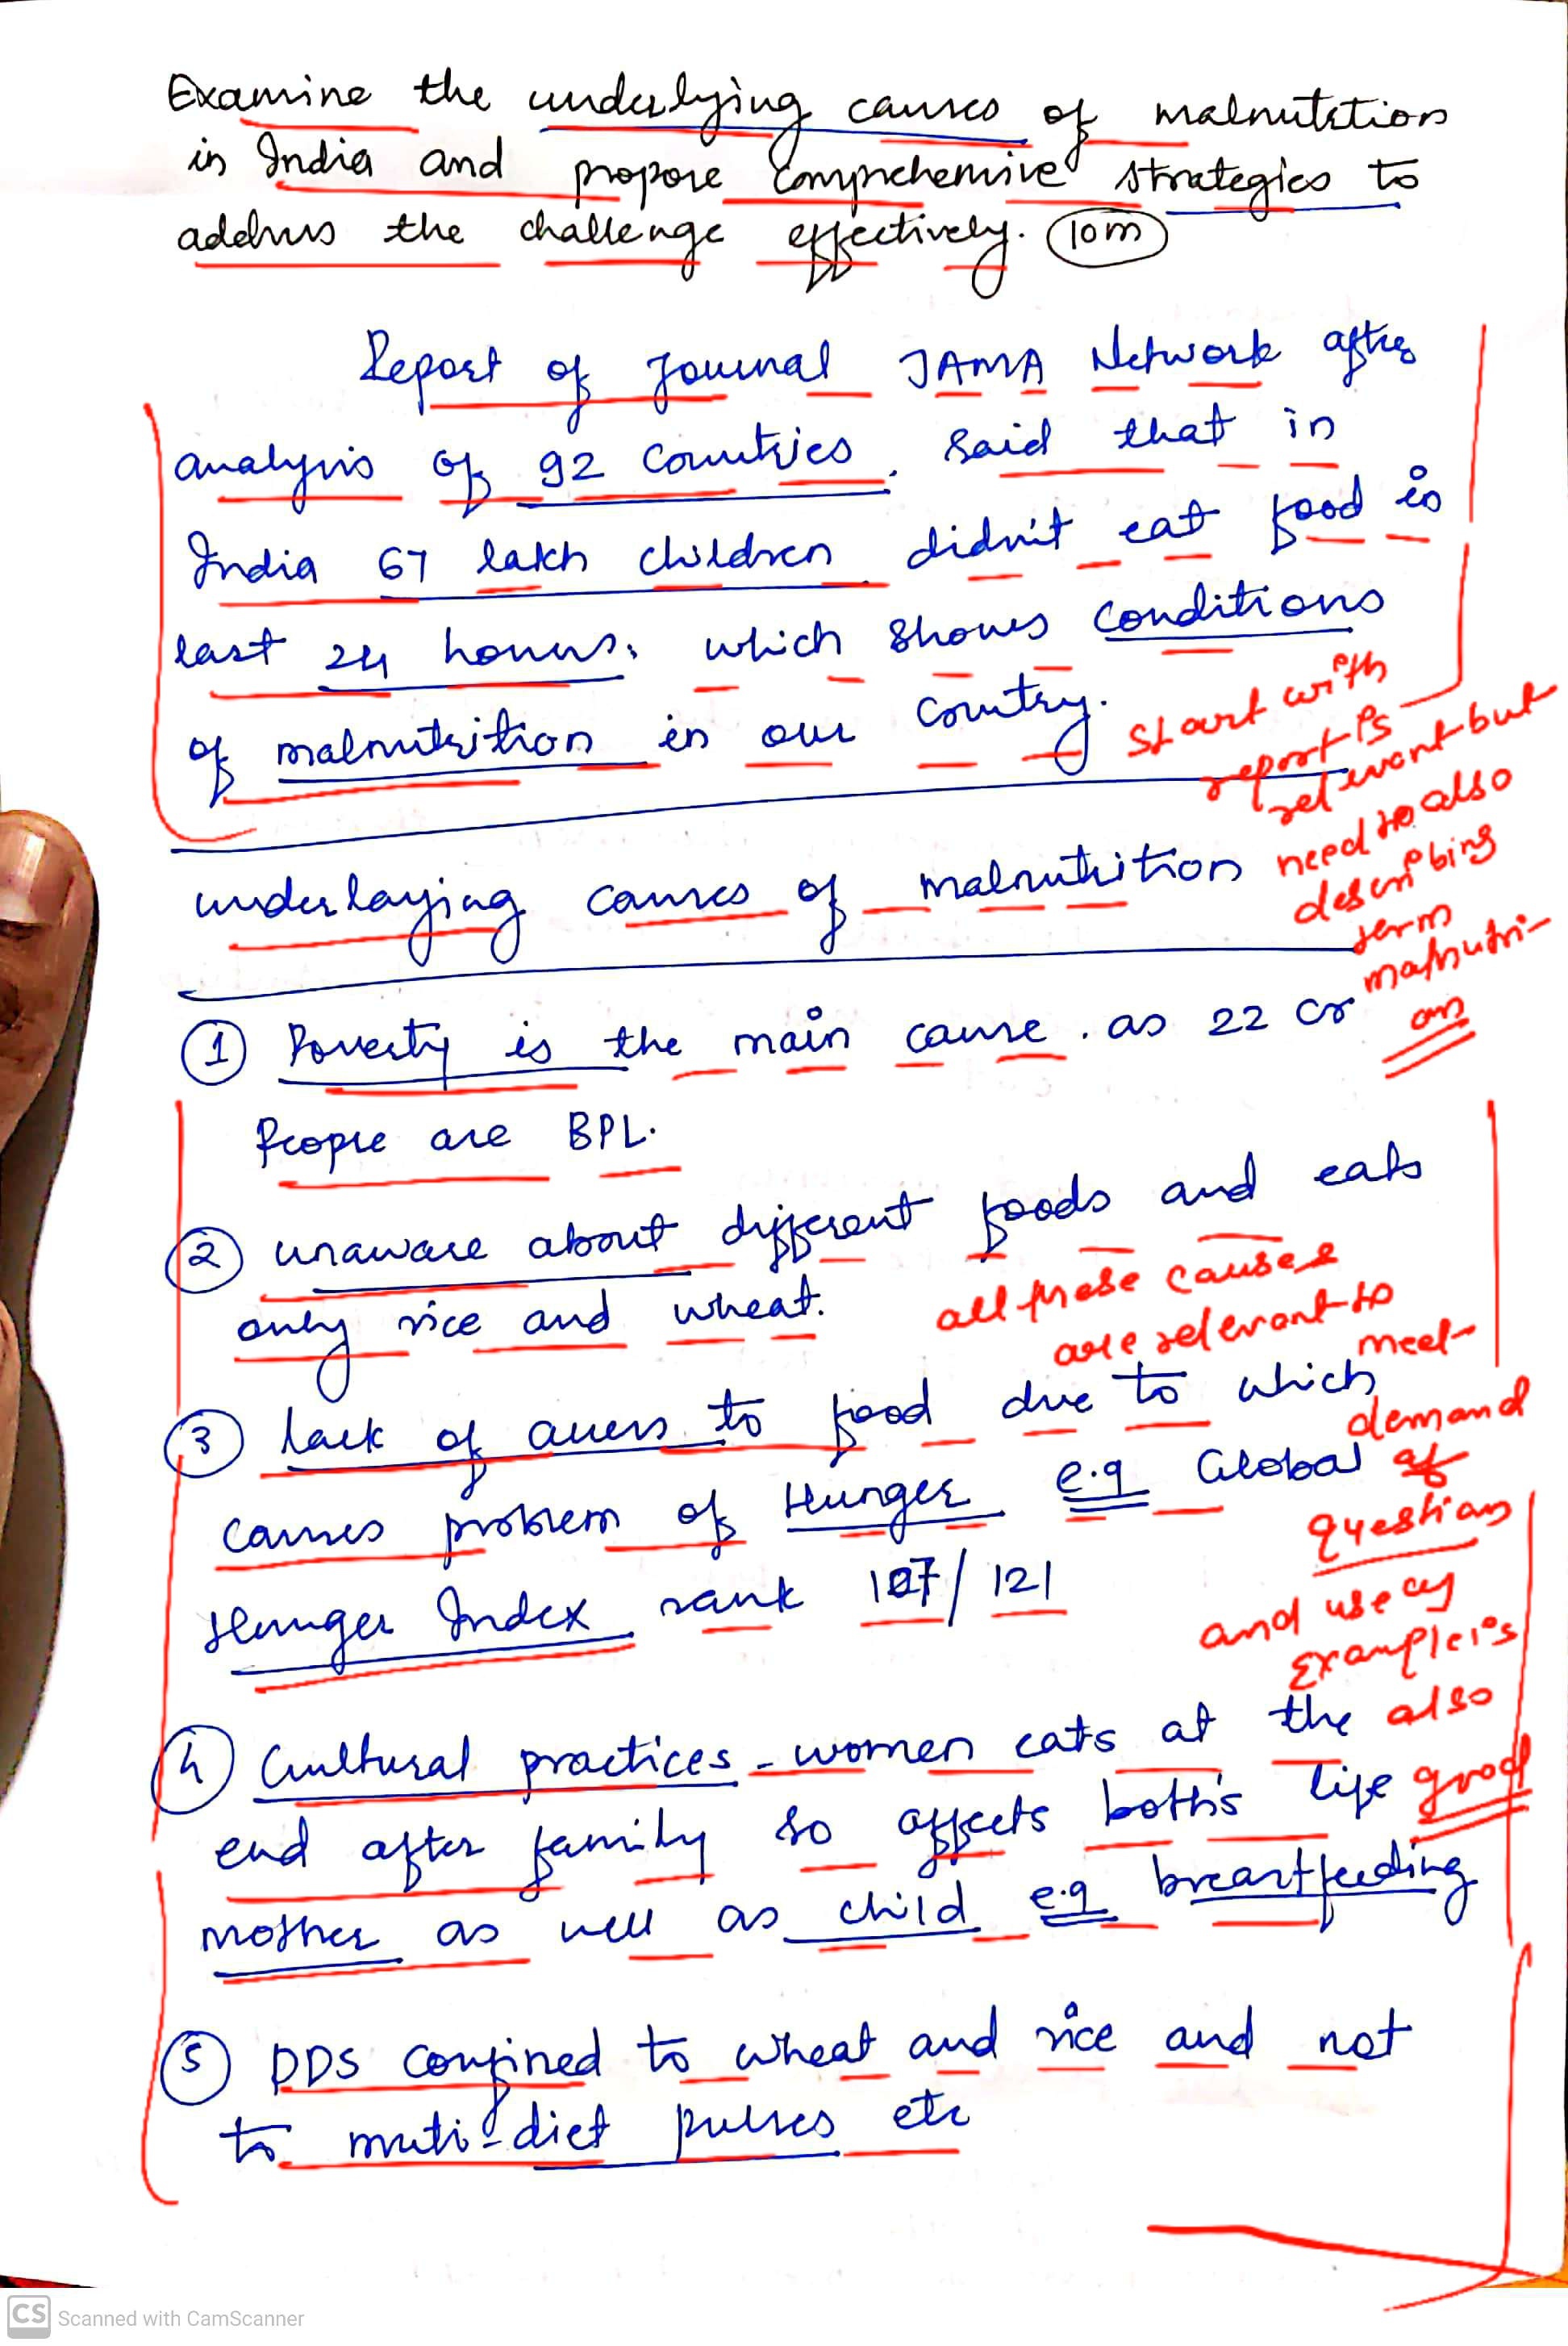 Examine the underlying causes of malnutrition
in India and propose Comprehensive strategies to
address the challenge effectively. 10m
Report of Journal JAMA Network after
analysis of 92 Countries. Said that in
India 67 lakh children didn't eat food in
last 24 hours. which shows conditions
of malnutrition in our country.
start with
report is
relevant but
need to also
describing
term
malnutri-
on
underlaying causes of malnutrition
① Poverty is the main cause. as 22 cr
People are BPL.
② unaware about different foods and eats
only rice and wheat.
all these causes
are relevant to
meet
demand
of
question
and use of
Example is
also
good
③ lack of access to food due to which
causes problem of Hunger e.g Global
Hunger Index rank 107/121
④ Cultural practices - women eats at the
end after family so affects both's life
mother as well as child e.g breastfeeding
⑤ PDS confined to wheat and rice and not
to muti-diet pulses etc
CS Scanned with CamScanner